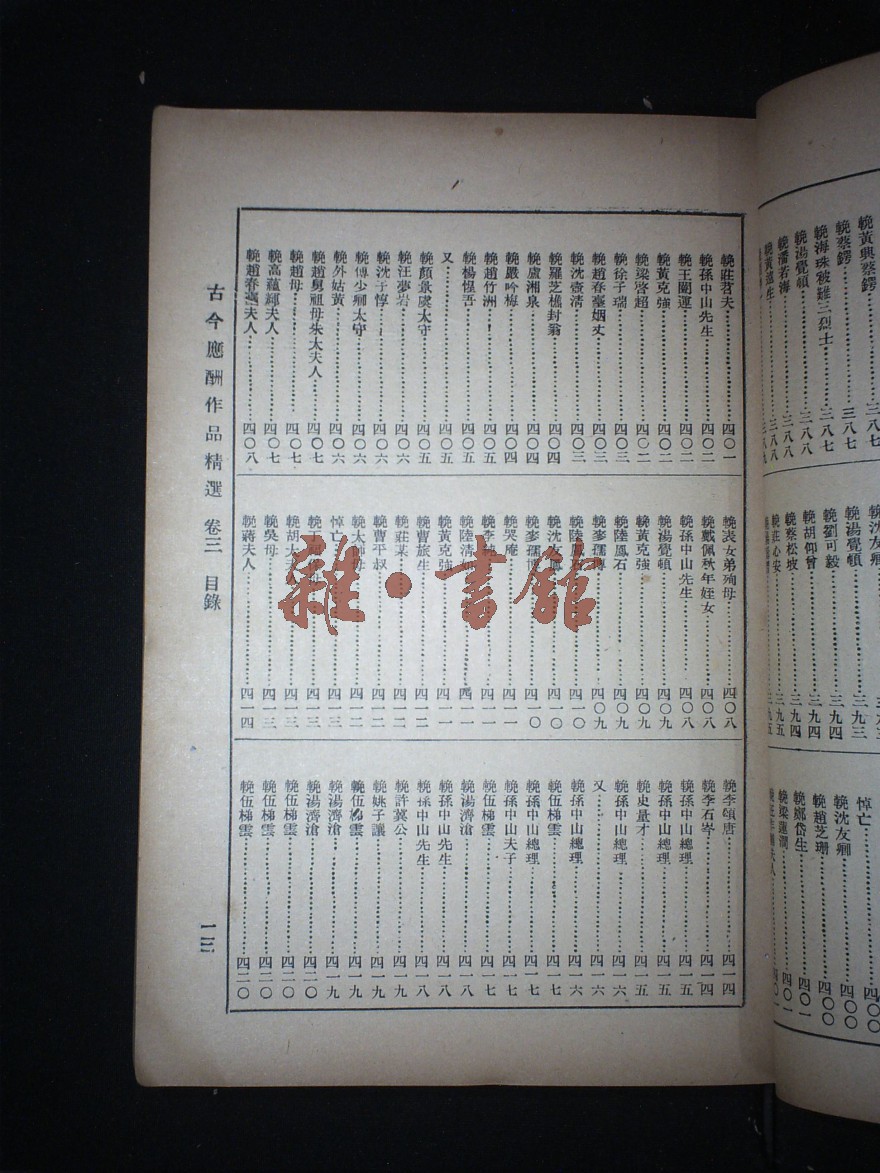 輓黃興蔡鍔……三八七
輓蔡鍔……三八七
輓海珠被難三烈士……三八七
輓湯覺頓……三八八
輓潘若海……三八八
輓沈友卿
輓湯覺頓……三九三
輓劉可毅……三九三
輓胡仰曾……三九四
輓蔡松坡……三九四
輓莊心安……三九五
悼亡……四〇〇
輓沈友卿……四〇〇
輓趙芝珊……四〇〇
輓鄭岱生……四〇一
輓梁蓮澗……四〇一
輓莊苕夫……四〇一
輓孫中山先生……四〇二
輓王闓運……四〇二
輓黃克強……四〇二
輓梁啓超……四〇二
輓徐子瑞……四〇三
輓趙春臺烟丈……四〇三
輓沈壺淸……四〇三
輓羅芝樵封翁……四〇四
輓盧湘泉……四〇四
輓嚴吟梅……四〇四
輓趙竹洲……四〇五
輓楊惺吾……四〇五
又……四〇五
輓顏景虞太守……四〇五
輓汪夢岩……四〇六
輓沈子惇……四〇六
輓傅少卿太守……四〇六
輓外姑黃……四〇六
輓趙舅祖母朱太夫人……四〇七
輓趙母……四〇七
輓高蘊輝夫人……四〇七
輓趙春臺夫人……四〇八
輓裘女弟殉母……四〇八
輓戴佩秋年姪女……四〇八
輓孫中山先生……四〇八
輓湯覺頓……四〇九
輓黃克強……四〇九
輓陸鳳石……四〇九
輓麥孺博……四〇九
輓陸鳳石……四一〇
輓沈友卿……四一〇
輓麥孺博……四一〇
輓哭庵……四一一
輓李……四一一
輓陸淸如……四一一
輓黃克強……四一一
輓曹旅生……四一二
輓莊某……四一二
輓曹平叔……四一二
輓太師母……四一二
悼亡……四一三
輓丁……母……四一三
輓胡太夫人……四一三
輓吳母……四一三
輓蔣夫人……四一四
輓李頌唐……四一四
輓李石岑……四一四
輓孫中山總理……四一五
輓孫中山總理……四一五
輓史量才……四一五
輓孫中山總理……四一六
又……四一六
輓孫中山總理……四一六
輓伍梯雲……四一七
輓孫中山總理……四一七
輓孫中山夫子……四一七
輓伍梯雲……四一七
輓湯濟滄……四一八
輓孫中山先生……四一八
輓孫中山先生……四一八
輓許冀公……四一九
輓姚子讓……四一九
輓伍梯雲……四一九
輓湯濟滄……四一九
輓湯濟滄……四二〇
輓伍梯雲……四二〇
輓伍梯雲……四二〇
輓伍梯雲……四二〇
古今應酬作品精選 卷三 目錄
雜·書館